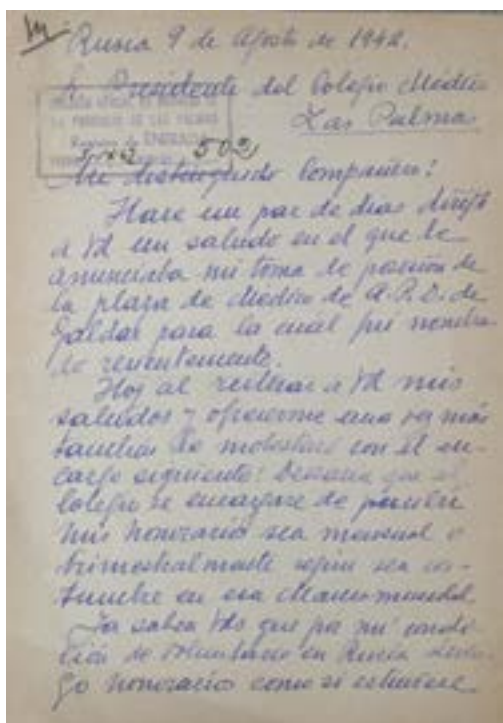 Rusia 9 de Agosto de 1942.
Sr. Presidente del Colegio Médico
Las Palmas
COLEGIO OFICIAL DE MEDICOS DE
LA PROVINCIA DE LAS PALMAS
Registro de ENTRADA
502
Mi distinguido Compañero:
Hace un par de dias dirijí
a Vd un saludo en el que le
anunciaba mi toma de posesión de
la plaza de Medico de A.P.D. de
Galdar para la cual fui nombra-
do recientemente.
Hoy al reiterar a Vd mis
saludos y ofrecerme una vez más
tambien he molestarle con el en-
cargo siguiente: Desearia que el
Colegio se encargase de percibir
mis honorarios sea mensual o
trimestralmente según sea cos-
tumbre en esa Mancomunidad.
Ya saben Vds que por mi condi-
ción de Voluntario en Rusia deven-
go honorarios como si estuviere